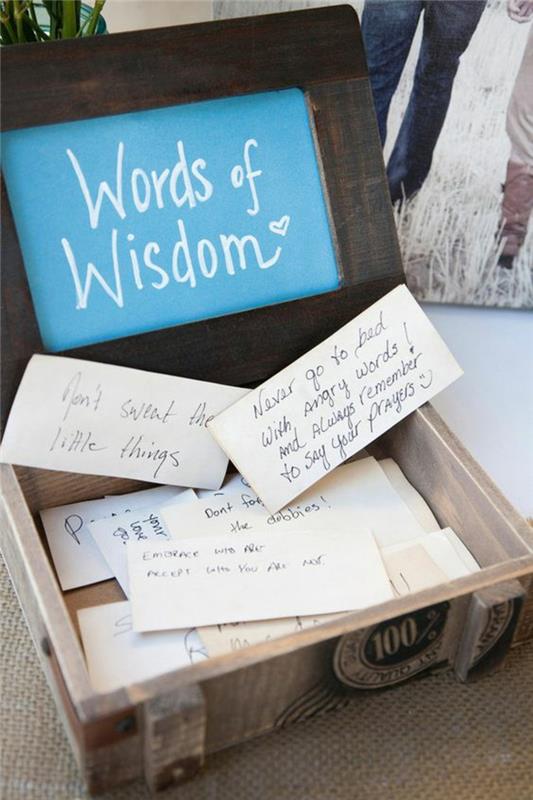 Words of
Wisdom
Don't sweat the
little things
Never go to bed
with angry words!
And Always remember
to say your prayers
your
love
Dont for
the dobbies!
EMBRACE WHO ARE
ACCEPT WHO YOU ARE NOT.
100
QUALITY